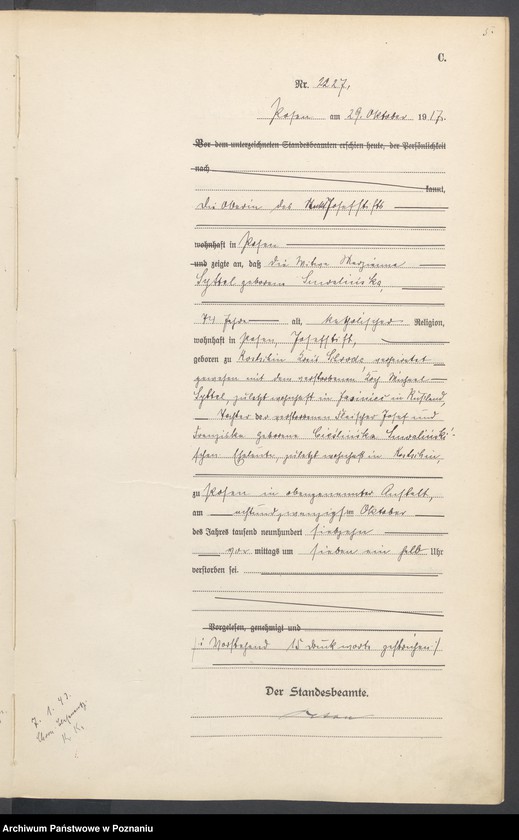 C.
Nr. 2227,
Posen am 29. Oktober 1917.
Vor dem unterzeichneten Standesbeamten erschien heute, der Persönlichkeit
nach
kannt,
die Oberin des Josefstifts
wohnhaft in Posen
und zeigte an, daß die Witwe Marzianna
Syttel geborene
74 Jahre alt, katholischer Religion,
wohnhaft in Posen, Josefstift,
geboren zu Kostschin Kreis Schroda verheiratet
gewesen mit dem verstorbenen Koch Michael
Syttel, zuletzt wohnhaft in in Rußland,
Tochter der verstorbenen Fleischer Josef und
Franziska geborene
schen Eheleute, zuletzt wohnhaft in Kostschin,
zu Posen in obengenannter Anstalt,
am achtundzwanzigsten Oktober
des Jahres tausend neunhundert siebzehn
vor mittags um sieben ein halb Uhr
verstorben sei.
Vorgelesen, genehmigt und
/: Vorstehend 15 Druckworte gestrichen :/
Der Standesbeamte.
7. 1. 43.
K. K.
Archiwum Państwowe w Poznaniu